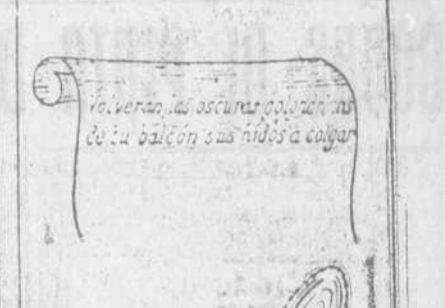 Volverán las oscuras golondrinas
de tu balcón sus nidos a colgar